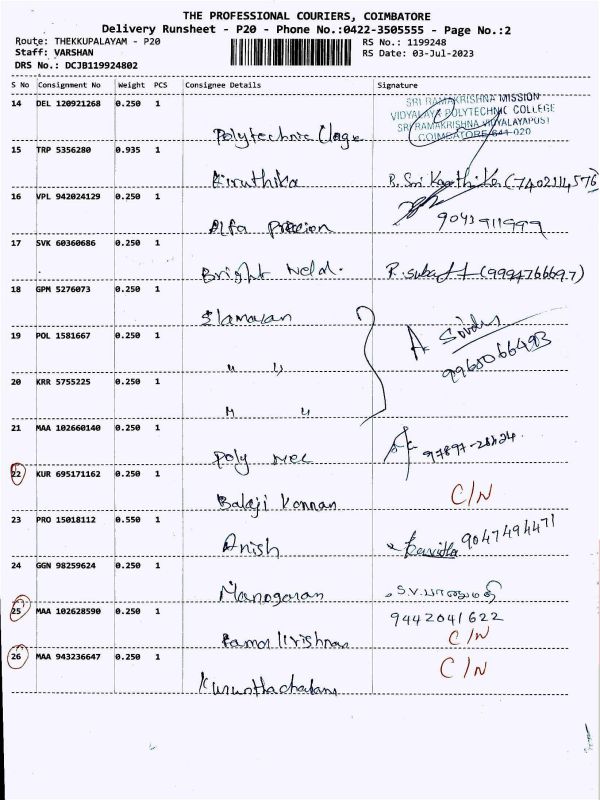 THE PROFESSIONAL COURIERS, COIMBATORE
Delivery Runsheet - P20 - Phone No.:0422-3505555 - Page No.:2
Route: THEKKUPALAYAM - P20 RS No.: 1199248
Staff: VARSHAN RS Date: 03-Jul-2023
DRS No.: DCJB119924802
S No Consignment No Weight PCS Consignee Details Signature
14 DEL 120921268 0.250 1 SRI RAMAKRISHNA MISSION
VIDYALAYA POLYTECHNIC COLLEGE
SRI RAMAKRISHNA VIDYALAYAPOST
COIMBATORE 641 020
Polytechnic
15 TRP 5356280 0.935 1
Kiruthika R. Sri Karthika (7402114576
16 VPL 942024129 0.250 1
Alfa 9043911999
17 SVK 60360686 0.250 1
Bright (9994766697)
18 GPM 5276073 0.250 1
Elamaran
19 POL 1581667 0.250 1
" "
20 KRR 5755225 0.250 1
" "
21 MAA 102660140 0.250 1
Poly Mec
22 KUR 695171162 0.250 1
Balaji Kannan C/N
23 PRO 15018112 0.550 1
Anish Kavitha 9047494471
24 GGN 98259624 0.250 1
Manogaran S.V.பானுமதி
25 MAA 102628590 0.250 1 9442041622
C/N
26 MAA 943236647 0.250 1 C/N